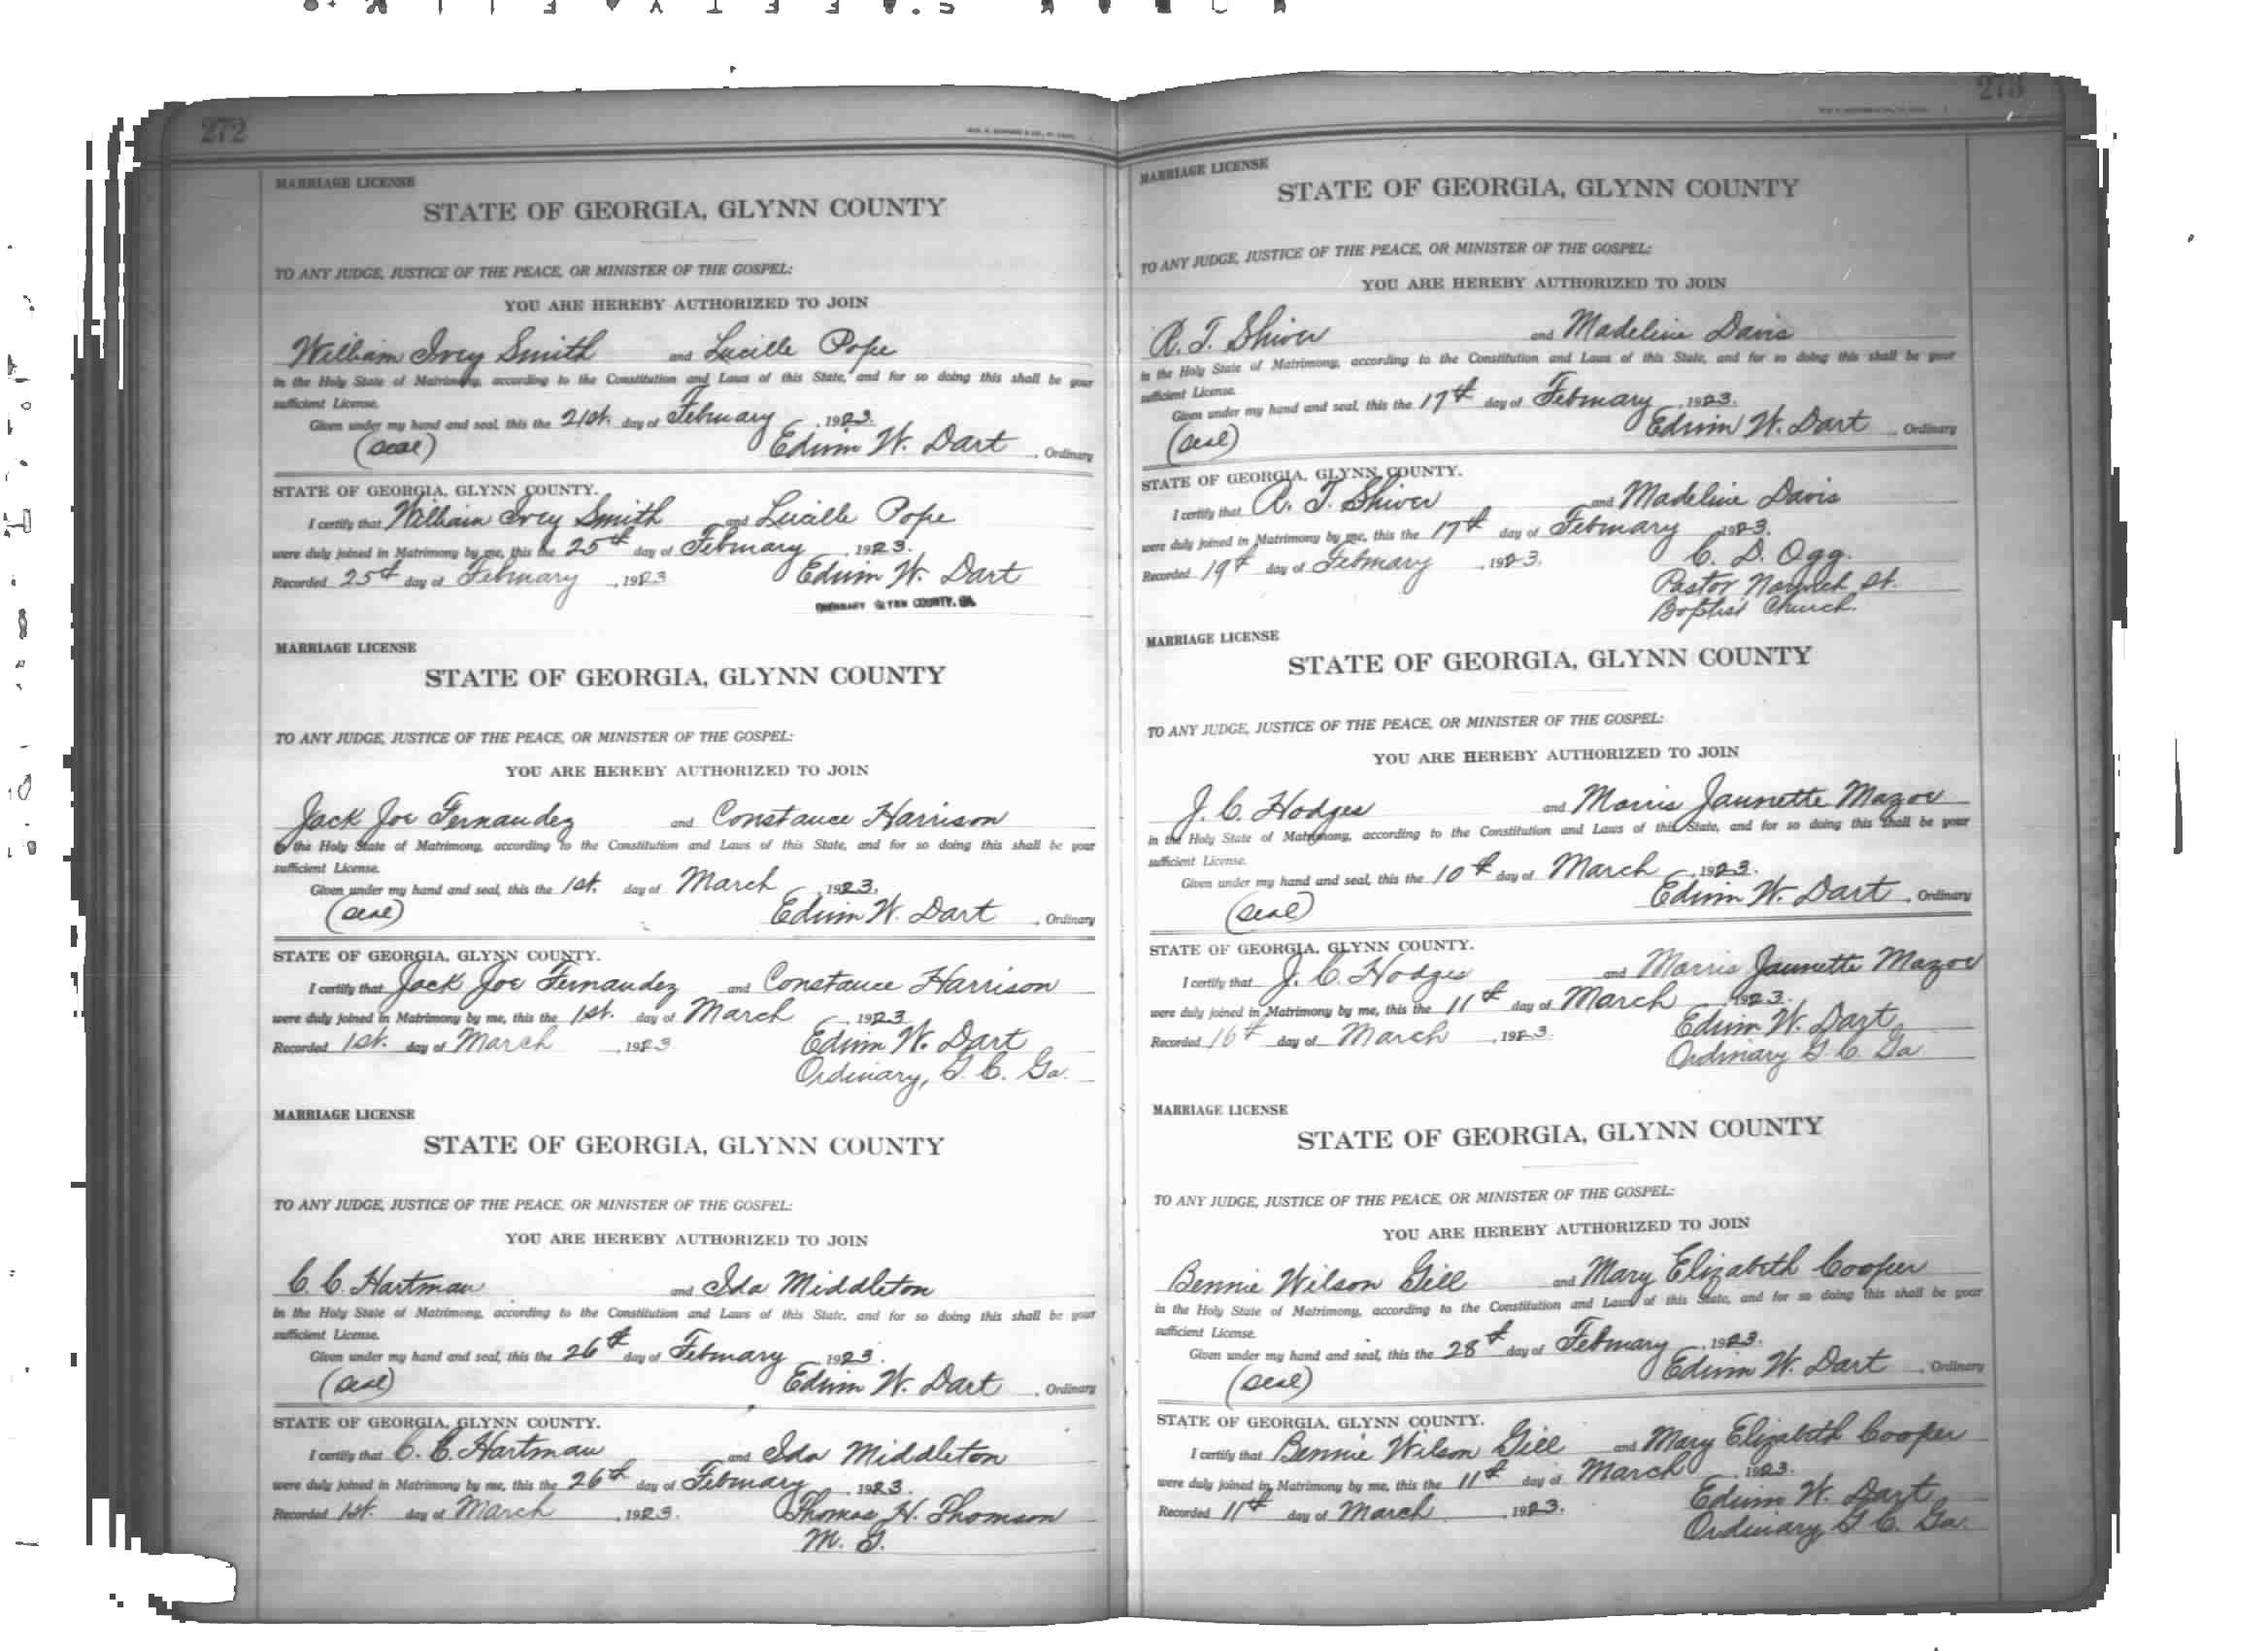 272
MARRIAGE LICENSE
STATE OF GEORGIA, GLYNN COUNTY
TO ANY JUDGE, JUSTICE OF THE PEACE, OR MINISTER OF THE GOSPEL:
YOU ARE HEREBY AUTHORIZED TO JOIN
William Ivey Smith and Lucille Pope
in the Holy State of Matrimony, according to the Constitution and Laws of this State, and for so doing this shall be your
sufficient License.
Given under my hand and seal, this the 21st. day of February, 1923.
(seal) Edwin W. Dart, Ordinary
STATE OF GEORGIA, GLYNN COUNTY.
I certify that William Ivey Smith and Lucille Pope
were duly joined in Matrimony by me, this the 25th day of February, 1923.
Recorded 25th day of February, 1923 Edwin W. Dart
ORDINARY GLYNN COUNTY, GA.
MARRIAGE LICENSE
STATE OF GEORGIA, GLYNN COUNTY
TO ANY JUDGE, JUSTICE OF THE PEACE, OR MINISTER OF THE GOSPEL:
YOU ARE HEREBY AUTHORIZED TO JOIN
Jack Joe Fernandez and Constance Harrison
in the Holy State of Matrimony, according to the Constitution and Laws of this State, and for so doing this shall be your
sufficient License.
Given under my hand and seal, this the 1st. day of March, 1923.
(seal) Edwin W. Dart, Ordinary
STATE OF GEORGIA, GLYNN COUNTY.
I certify that Jack Joe Fernandez and Constance Harrison
were duly joined in Matrimony by me, this the 1st. day of March, 1923
Recorded 1st. day of March, 1923 Edwin W. Dart
Ordinary, G. C. Ga.
MARRIAGE LICENSE
STATE OF GEORGIA, GLYNN COUNTY
TO ANY JUDGE, JUSTICE OF THE PEACE, OR MINISTER OF THE GOSPEL:
YOU ARE HEREBY AUTHORIZED TO JOIN
C. C. Hartman and Ida Middleton
in the Holy State of Matrimony, according to the Constitution and Laws of this State, and for so doing this shall be your
sufficient License.
Given under my hand and seal, this the 26th day of February, 1923.
(seal) Edwin W. Dart, Ordinary
STATE OF GEORGIA, GLYNN COUNTY.
I certify that C. C. Hartman and Ida Middleton
were duly joined in Matrimony by me, this the 26th day of February, 1923.
Recorded 1st. day of March, 1923. Thomas H. Thomson
M. G.
273
MARRIAGE LICENSE
STATE OF GEORGIA, GLYNN COUNTY
TO ANY JUDGE, JUSTICE OF THE PEACE, OR MINISTER OF THE GOSPEL:
YOU ARE HEREBY AUTHORIZED TO JOIN
R. T. Shiver and Madeline Davis
in the Holy State of Matrimony, according to the Constitution and Laws of this State, and for so doing this shall be your
sufficient License.
Given under my hand and seal, this the 17th day of February, 1923.
(seal) Edwin W. Dart, Ordinary
STATE OF GEORGIA, GLYNN COUNTY.
I certify that R. T. Shiver and Madeline Davis
were duly joined in Matrimony by me, this the 17th day of February 1923.
Recorded 19th day of February, 1923. C. D. Ogg.
Pastor Norwich St.
Baptist Church.
MARRIAGE LICENSE
STATE OF GEORGIA, GLYNN COUNTY
TO ANY JUDGE, JUSTICE OF THE PEACE, OR MINISTER OF THE GOSPEL:
YOU ARE HEREBY AUTHORIZED TO JOIN
J. C. Hodges and Morris Jaunette Mazoe
in the Holy State of Matrimony, according to the Constitution and Laws of this State, and for so doing this shall be your
sufficient License.
Given under my hand and seal, this the 10th day of March, 1923.
(seal) Edwin W. Dart, Ordinary
STATE OF GEORGIA, GLYNN COUNTY.
I certify that J. C. Hodges and Morris Jaunette Mazoe
were duly joined in Matrimony by me, this the 11th day of March, 1923.
Recorded 16th day of March, 1923. Edwin W. Dart
Ordinary G. C. Ga.
MARRIAGE LICENSE
STATE OF GEORGIA, GLYNN COUNTY
TO ANY JUDGE, JUSTICE OF THE PEACE, OR MINISTER OF THE GOSPEL:
YOU ARE HEREBY AUTHORIZED TO JOIN
Bennie Wilson Gill and Mary Elizabeth Cooper
in the Holy State of Matrimony, according to the Constitution and Laws of this State, and for so doing this shall be your
sufficient License.
Given under my hand and seal, this the 28th day of February, 1923.
(seal) Edwin W. Dart, Ordinary
STATE OF GEORGIA, GLYNN COUNTY.
I certify that Bennie Wilson Gill and Mary Elizabeth Cooper
were duly joined in Matrimony by me, this the 11th day of March, 1923.
Recorded 11th day of March, 1923. Edwin W. Dart
Ordinary G. C. Ga.